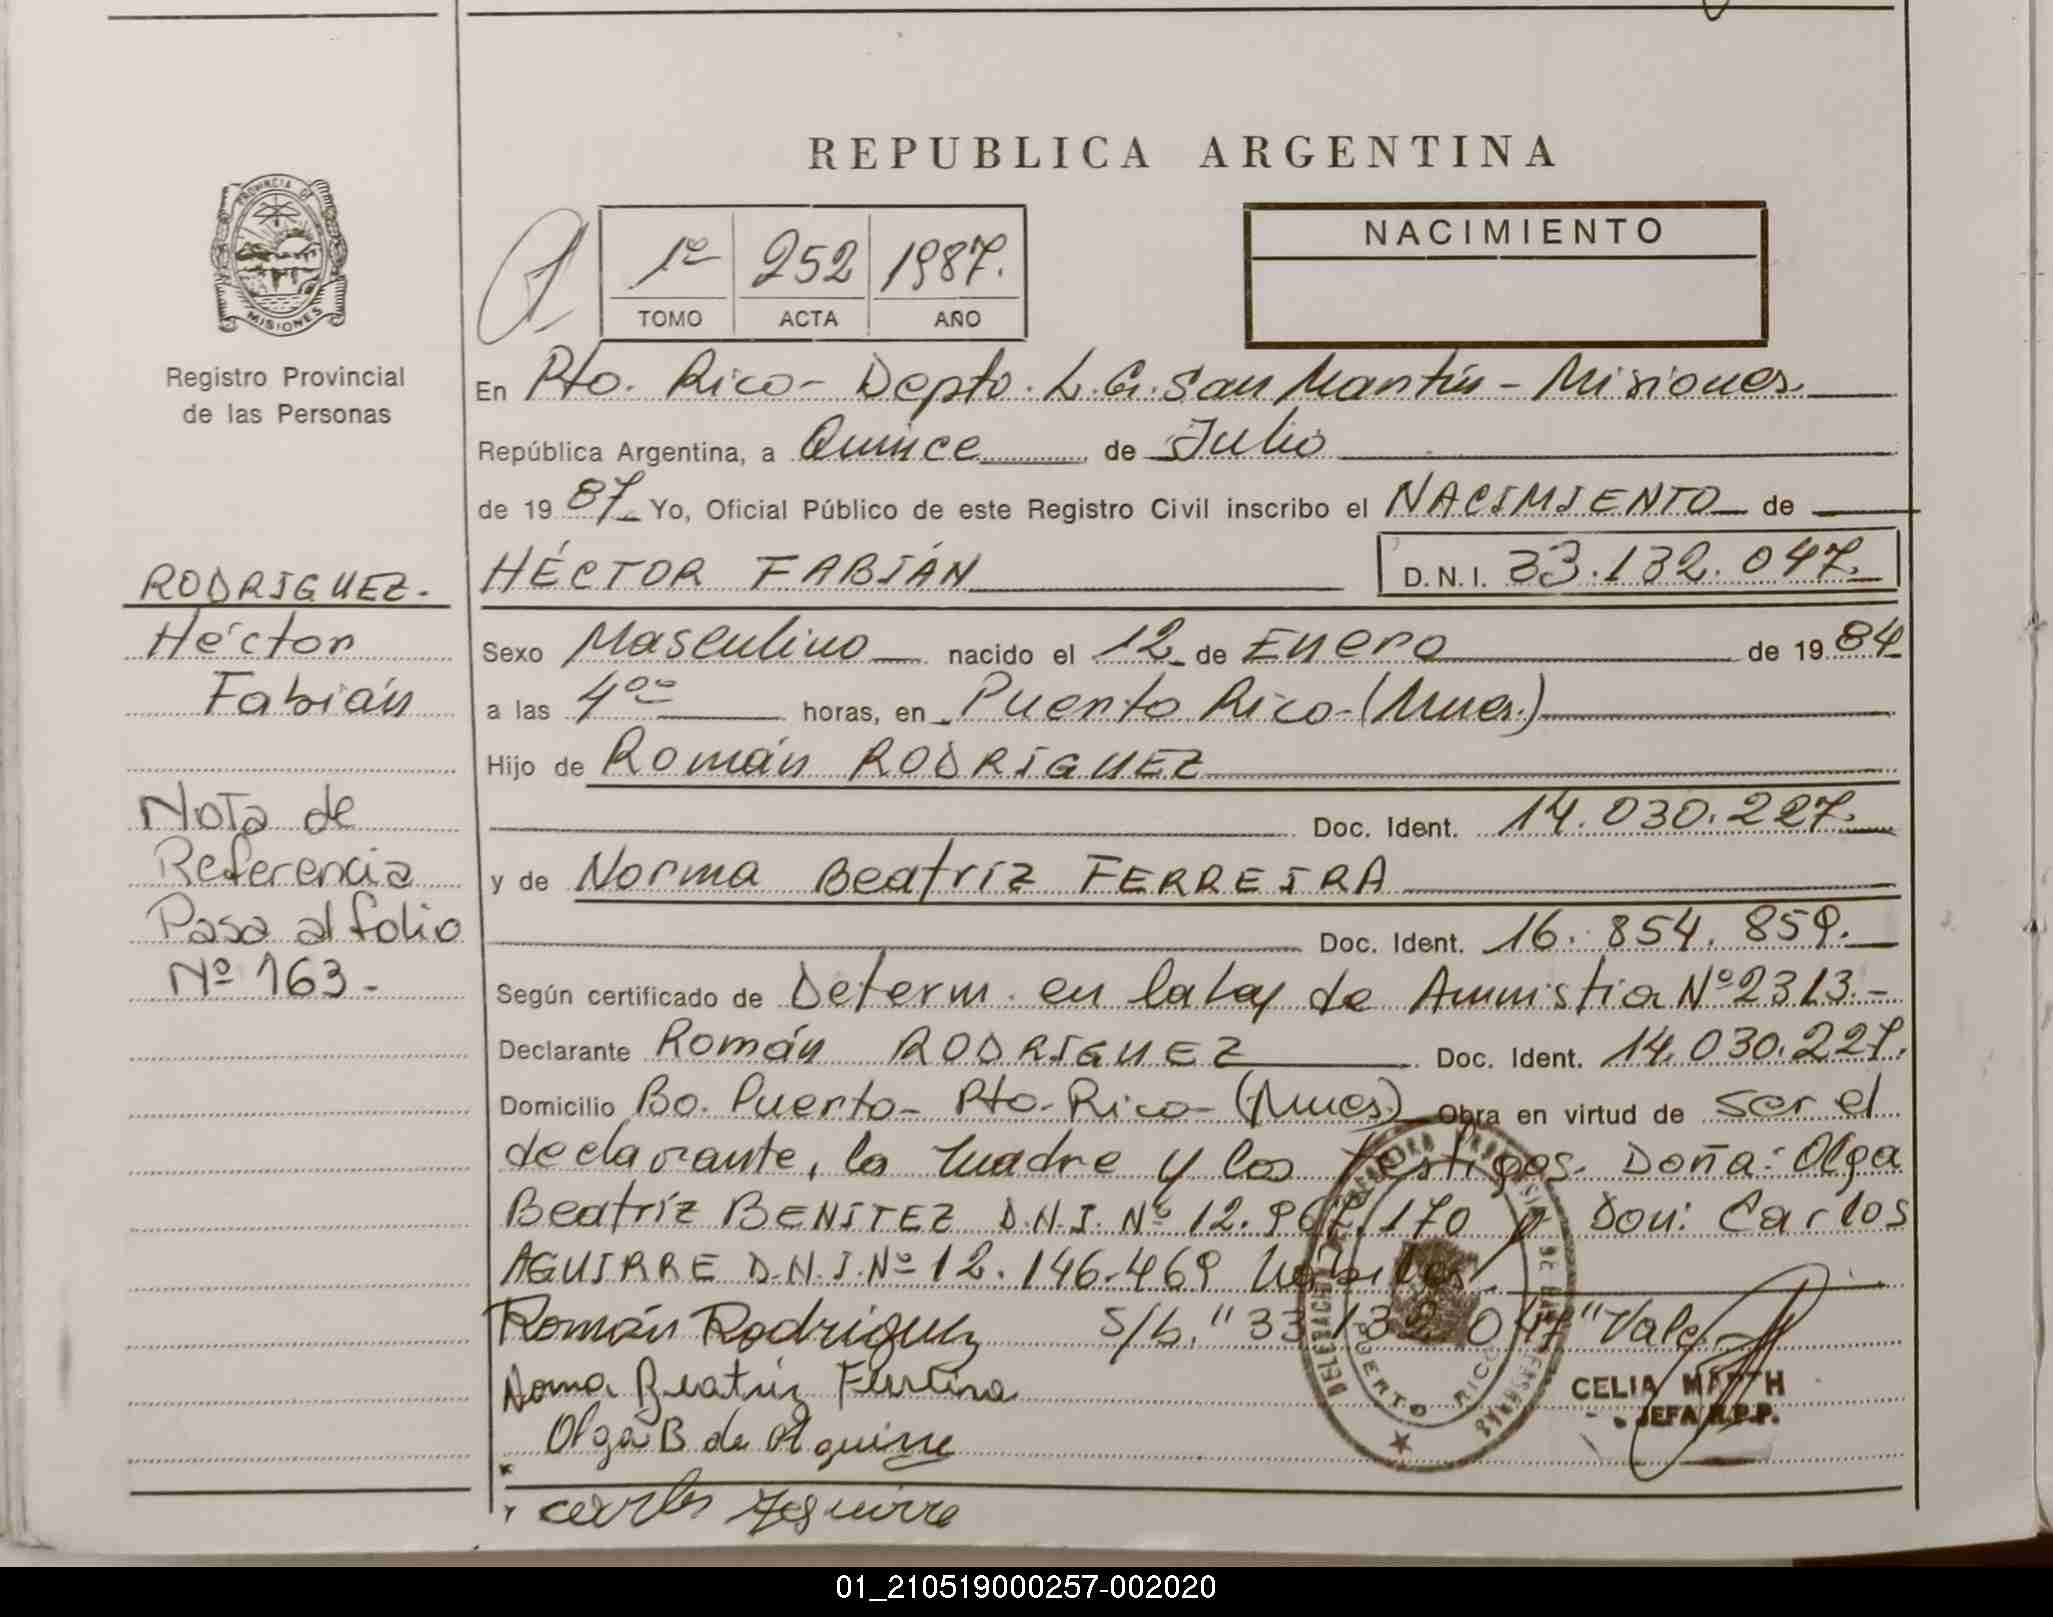 REPUBLICA ARGENTINA
PROVINCIA DE MISIONES
Registro Provincial
de las Personas
1º 252 1987.
TOMO ACTA AÑO
NACIMIENTO
En Pto. Rico - Depto. L.G. San Martín - Misiones.
República Argentina, a Quince de Julio
de 19 87 Yo, Oficial Público de este Registro Civil inscribo el NACIMIENTO de
HÉCTOR FABIÁN D.N.I. 33.132.047.
RODRIGUEZ.
Héctor
Fabián
Nota de
Referencia
Pasa al folio
Nº 163-
Sexo Masculino nacido el 12 de Enero de 19 84
a las 4⁰⁰ horas, en Puerto Rico - (Mnes.)
Hijo de Román RODRÍGUEZ
Doc. Ident. 14.030.227.
y de Norma Beatríz FERREIRA
Doc. Ident. 16.854.859.
Según certificado de Determ. en la Ley de Amnistia Nº 2313.-
Declarante Román RODRIGUEZ Doc. Ident. 14.030.227.
Domicilio Bo. Puerto - Pto. Rico - (Mnes.) Obra en virtud de ser el
declarante, la madre y los testigos. Doña: Olga
Beatríz BENITEZ D.N.I. Nº 12.967.170 y Don: Carlos
AGUIRRE D.N.I. Nº 12.146.469 habiles.
Román Rodriguez S/b. "33.132.047" Vale
Norma Beatriz Ferreira
Olga B de Aguirre
carlos Aguirre
CELIA MARTH
JEFA R.P.P.
DELEGACION REGISTRO PROVINCIAL DE LAS PERSONAS
PUERTO RICO
01_210519000257-002020